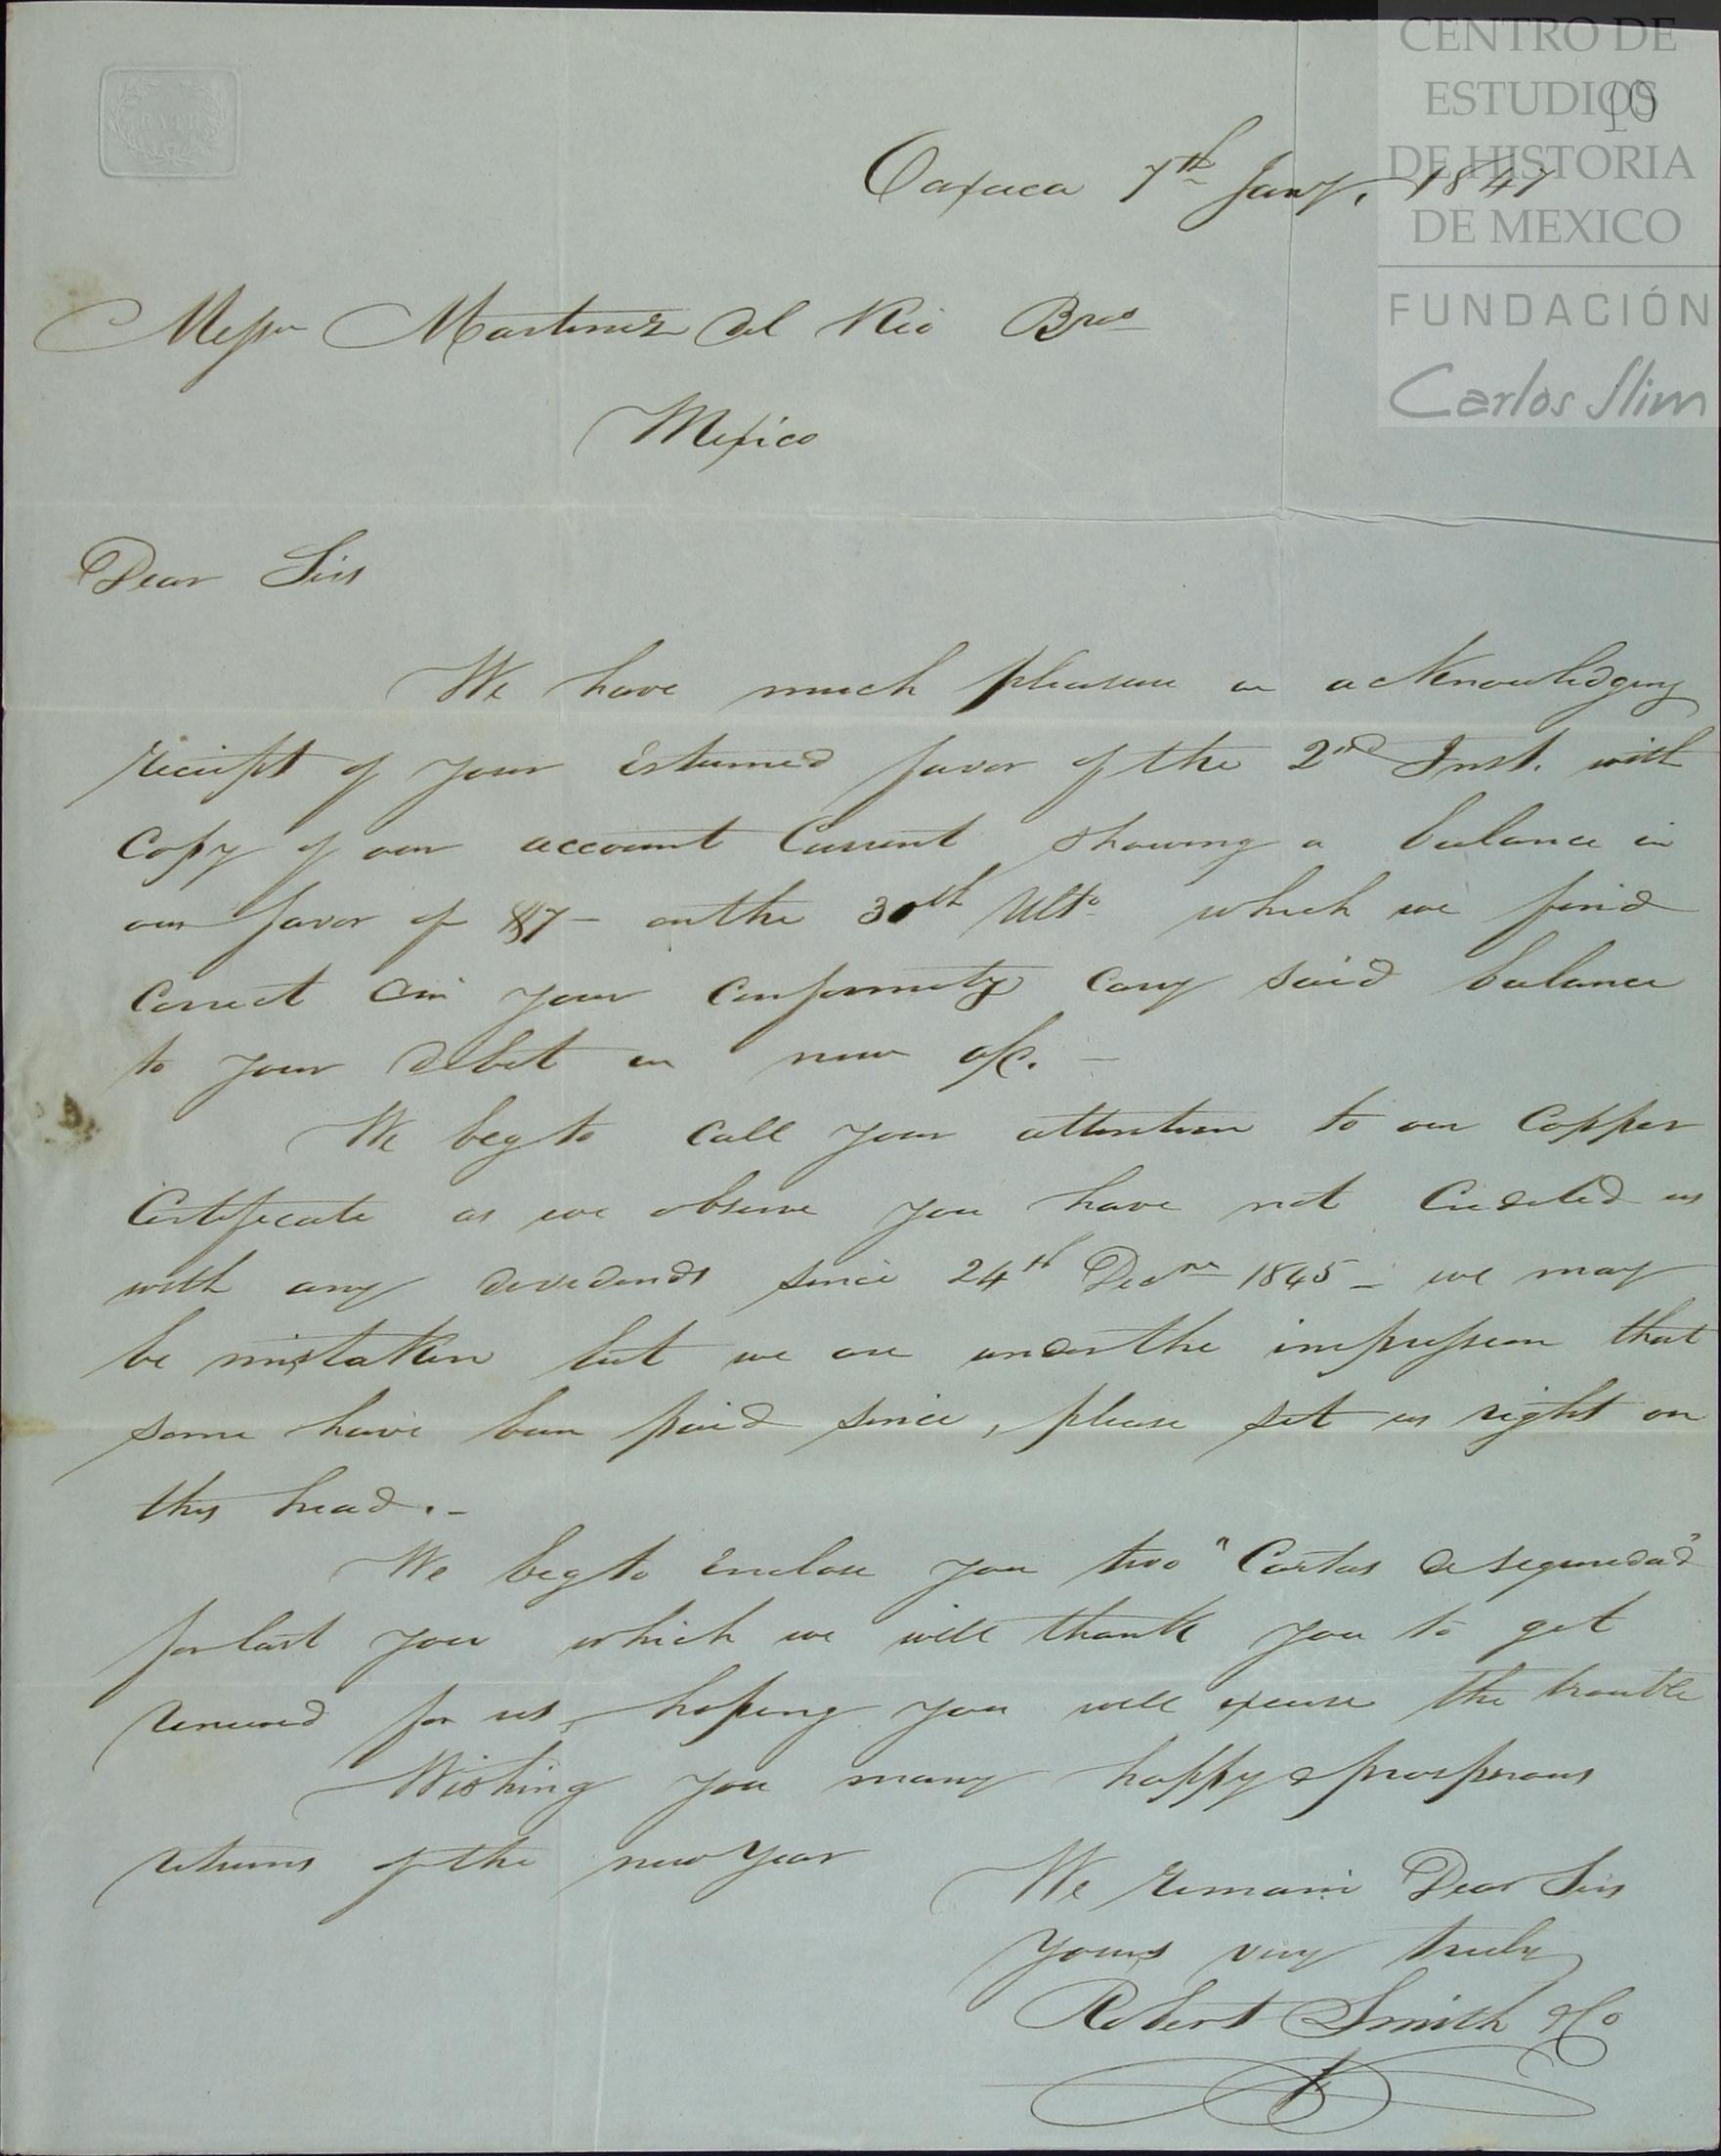 CENTRO DE
ESTUDIOS
DE HISTORIA
DE MEXICO
FUNDACIÓN
Carlos Slim
10
BATH
Oaxaca 7th Jany, 1847
Messrs Martinez del Rio Bros
Mexico
Dear Sirs
We have much pleasure in acknowledging
receipt of your Esteemed favor of the 2nd Inst. with
copy of our account Current showing a balance in
our favor of $7 — on the 30th Ulto which we find
Correct & in your Conformity carry said balance
to your debit in new a/c. —
We beg to call your attention to our Copper
Certificate as we observe you have not Credited us
with any dividends since 24th Decr 1845 — we may
be mistaken but we are under the impression that
some have been paid since, please set us right on
this head. —
We beg to Enclose you two "Cartas de seguridad"
for last year which we will thank you to get
renewed for us, hoping you will excuse the trouble
Wishing you many happy & prosperous
returns of the new Year
We remain Dear Sirs
Yours very truly
Robert Smith & Co